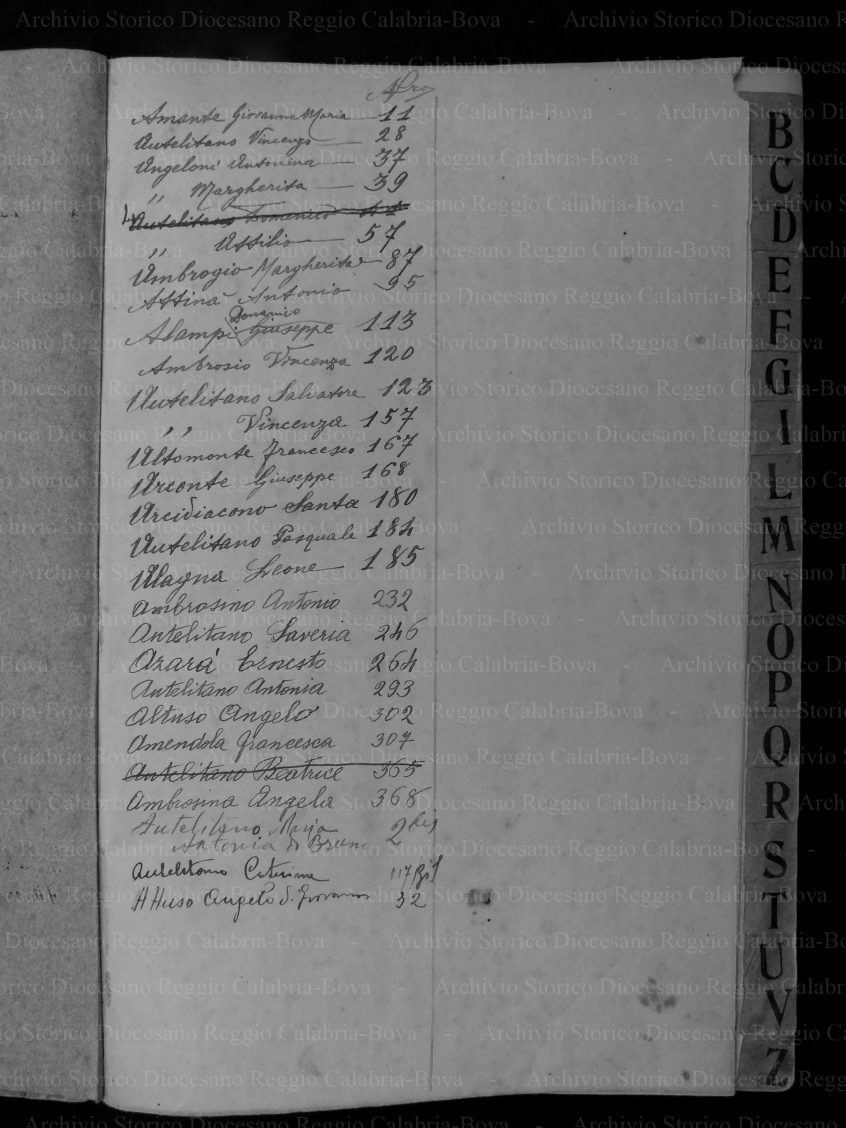 Nro
Amante Giovanna Maria — 11
Autelitano Vincenzo — 28
Angeloni Antonina — 37
" Margherita — 39
Autelitano Domenico 44
" Attilio — 57
Ambrogio Margherita — 87
Attinà Antonio 95
Domenico
Alampi Giuseppe 113
Ambrosio Vincenza 120
Autelitano Salvatore 123
" Vincenza 157
Altomonte Francesco 167
Arconte Giuseppe 168
Arcidiacono Santa 180
Autelitano Pasquale 184
Alagna Leone 185
Ambrosino Antonio 232
Autelitano Saveria 246
Azarà Ernesto 264
Autelitano Antonia 293
Altuso Angelo 302
Amendola Francesca 307
Autelitano Beatrice 365
Ambrosina Angela 368
Autelitano Maria 2 bis
Antonia di Bruno 2
Autelitano Caterina 117 bis
Attuso Angelo d. Giovanni 32
B
C
D
E
F
G
I
L
M
N
O
P
Q
R
S
T
U
V
Z
Archivio Storico Diocesano Reggio Calabria-Bova